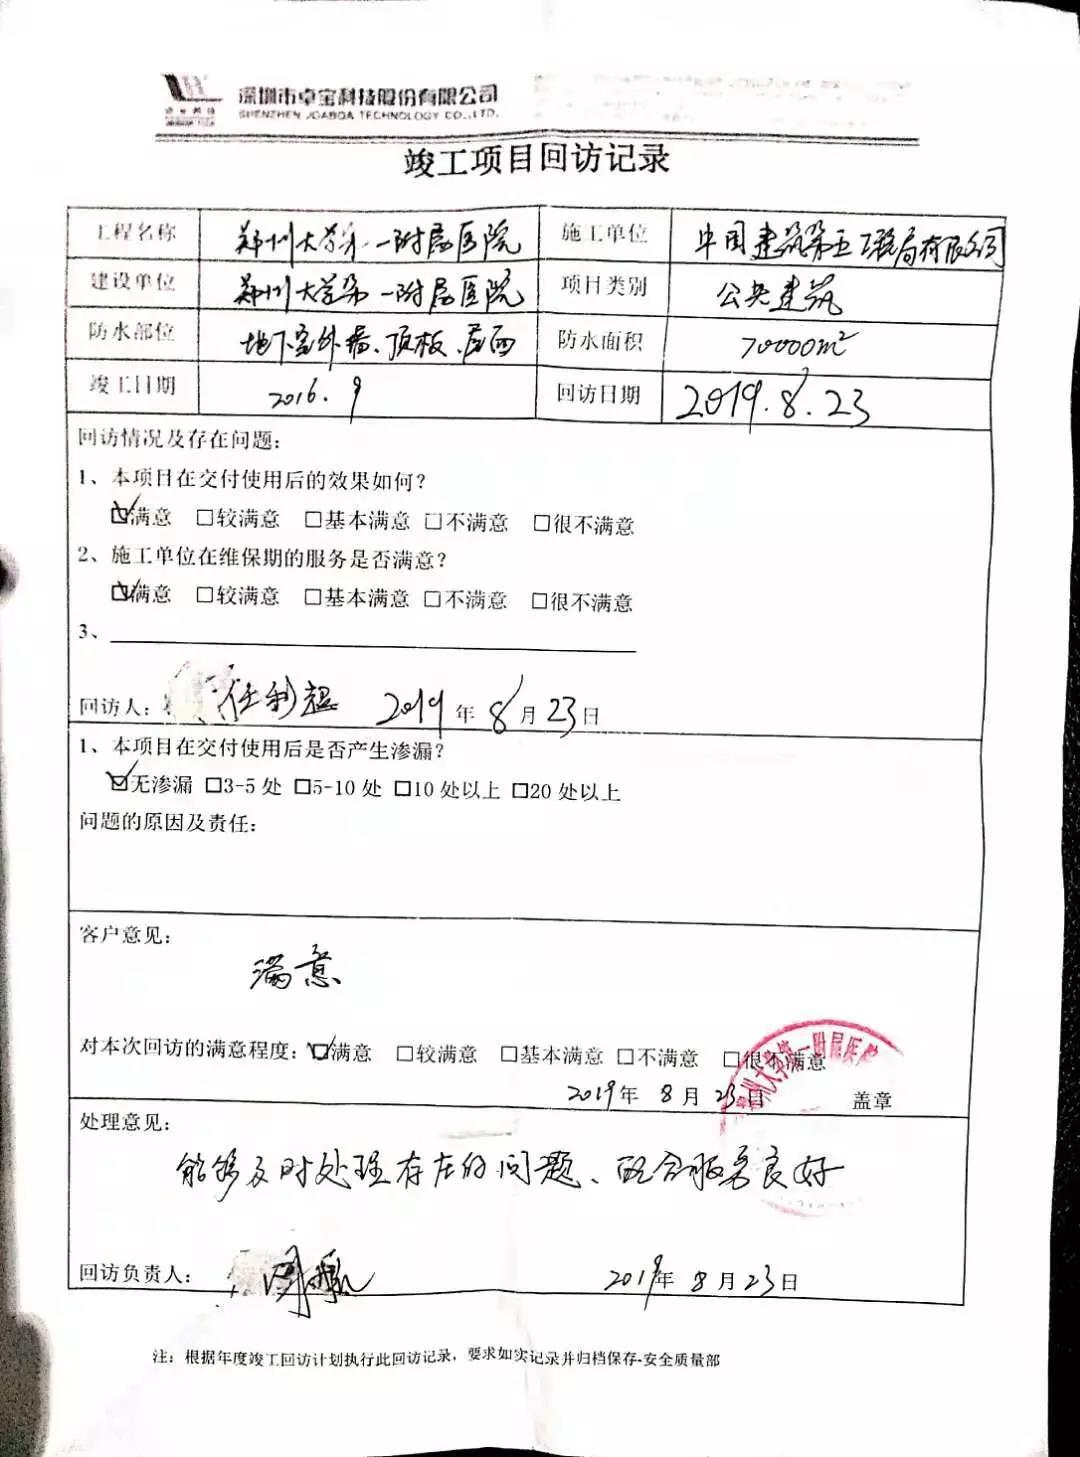 深圳市卓宝科技股份有限公司
SHENZHEN JOABOA TECHNOLOGY CO.,LTD.
竣工项目回访记录
工程名称 郑州大学第一附属医院 施工单位 中国建筑第五工程局有限公司
建设单位 郑州大学第一附属医院 项目类别 公共建筑
防水部位 地下室外墙、顶板、屋面 防水面积 70000m²
竣工日期 2016.9 回访日期 2019.8.23
回访情况及存在问题:
1、本项目在交付使用后的效果如何?
☑满意 □较满意 □基本满意 □不满意 □很不满意
2、施工单位在维保期的服务是否满意?
☑满意 □较满意 □基本满意 □不满意 □很不满意
3、
回访人: 任利超 2019年8月23日
1、本项目在交付使用后是否产生渗漏?
☑无渗漏 □3-5处 □5-10处 □10处以上 □20处以上
问题的原因及责任:
客户意见:
满意
对本次回访的满意程度: ☑满意 □较满意 □基本满意 □不满意 □很不满意
州大学第一附属医院
2019年8月23日 盖章
处理意见:
能够及时处理存在的问题、配合服务良好
回访负责人: 2019年8月23日
注: 根据年度竣工回访计划执行此回访记录, 要求如实记录并归档保存-安全质量部